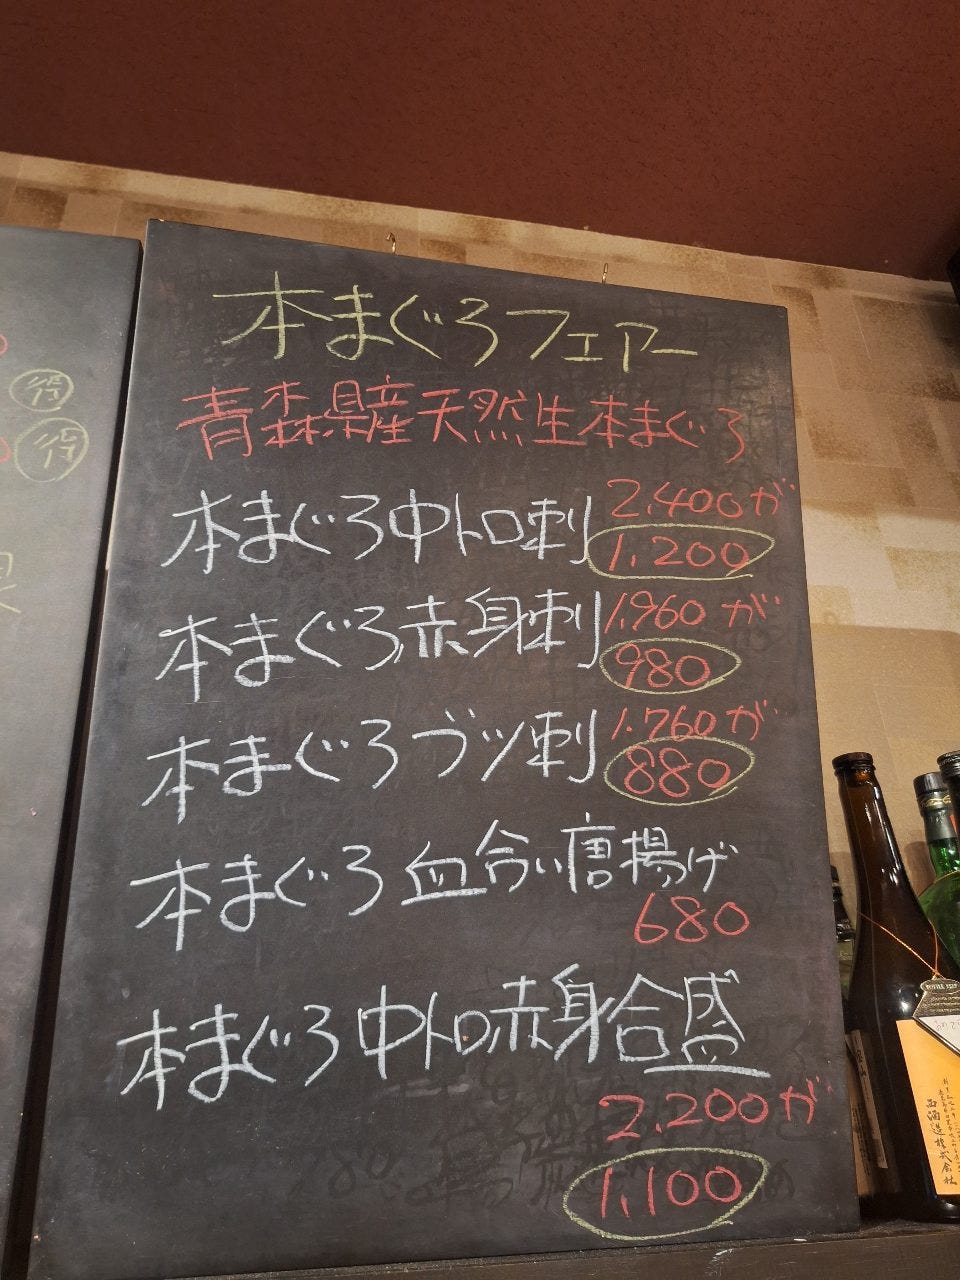 本まぐろフェアー
青森県産天然生本まぐろ
本まぐろ中トロ刺 2,400が
1,200
本まぐろ赤身刺 1,960が
980
本まぐろブツ刺 1,760が
880
本まぐろ血合い唐揚げ
680
本まぐろ中トロ赤身合盛
2,200が
1,100
得
得
西酒造株式会社